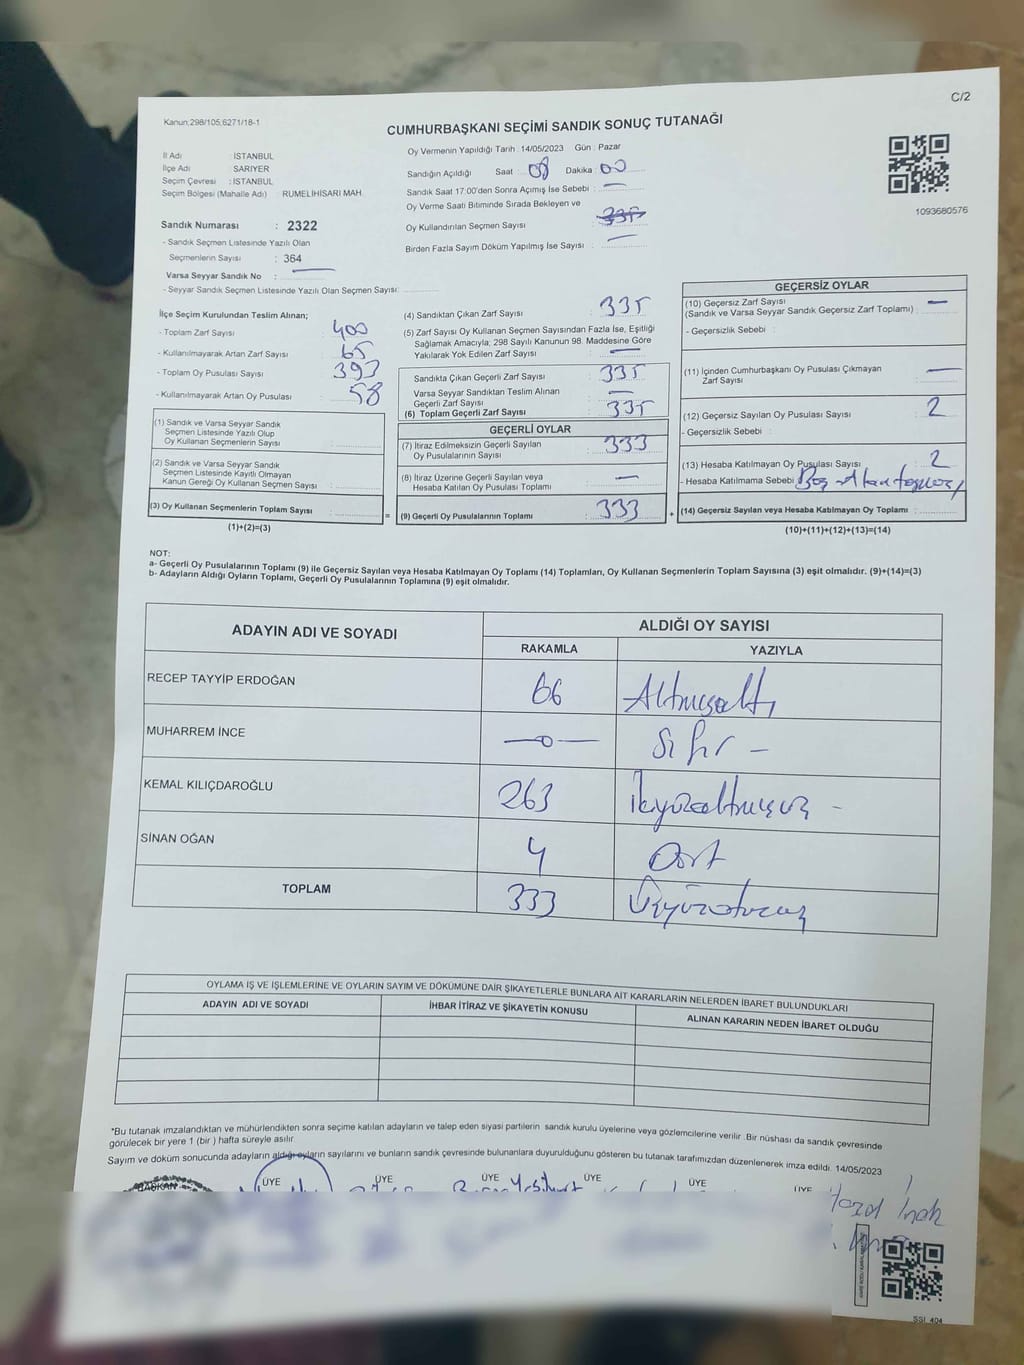 C/2
Kanun;298/105;6271/18-1
CUMHURBAŞKANI SEÇİMİ SANDIK SONUÇ TUTANAĞI
İl Adı : İSTANBUL
İlçe Adı : SARIYER
Seçim Çevresi : İSTANBUL
Seçim Bölgesi (Mahalle Adı) : RUMELİHİSARI MAH.
Oy Vermenin Yapıldığı Tarih : 14/05/2023 Gün : Pazar
Sandığın Açıldığı Saat : 08 Dakika : 00
Sandık Saat 17:00'den Sonra Açılmış İse Sebebi : —
Oy Verme Saati Bitiminde Sırada Bekleyen ve
Oy Kullandırılan Seçmen Sayısı : 335
Birden Fazla Sayım Döküm Yapılmış İse Sayısı : —
1093680576
Sandık Numarası : 2322
- Sandık Seçmen Listesinde Yazılı Olan
Seçmenlerin Sayısı : 364
Varsa Seyyar Sandık No : —
- Seyyar Sandık Seçmen Listesinde Yazılı Olan Seçmen Sayısı:
İlçe Seçim Kurulundan Teslim Alınan;
- Toplam Zarf Sayısı : 400
- Kullanılmayarak Artan Zarf Sayısı : 65
- Toplam Oy Pusulası Sayısı : 393
- Kullanılmayarak Artan Oy Pusulası : 58
(1) Sandık ve Varsa Seyyar Sandık
Seçmen Listesinde Yazılı Olup
Oy Kullanan Seçmenlerin Sayısı :
(2) Sandık ve Varsa Seyyar Sandık
Seçmen Listesinde Kayıtlı Olmayan
Kanun Gereği Oy Kullanan Seçmen Sayısı :
(3) Oy Kullanan Seçmenlerin Toplam Sayısı :
(1)+(2)=(3)
(4) Sandıktan Çıkan Zarf Sayısı : 335
(5) Zarf Sayısı Oy Kullanan Seçmen Sayısından Fazla İse, Eşitliği
Sağlamak Amacıyla; 298 Sayılı Kanunun 98. Maddesine Göre
Yakılarak Yok Edilen Zarf Sayısı : —
Sandıkta Çıkan Geçerli Zarf Sayısı : 335
Varsa Seyyar Sandıktan Teslim Alınan
Geçerli Zarf Sayısı : —
(6) Toplam Geçerli Zarf Sayısı : 335
GEÇERLİ OYLAR
(7) İtiraz Edilmeksizin Geçerli Sayılan
Oy Pusulalarının Sayısı : 333
(8) İtiraz Üzerine Geçerli Sayılan veya
Hesaba Katılan Oy Pusulası Toplamı : —
(9) Geçerli Oy Pusulalarının Toplamı : 333
=
+
GEÇERSİZ OYLAR
(10) Geçersiz Zarf Sayısı
(Sandık ve Varsa Seyyar Sandık Geçersiz Zarf Toplamı) : —
- Geçersizlik Sebebi :
(11) İçinden Cumhurbaşkanı Oy Pusulası Çıkmayan
Zarf Sayısı : —
(12) Geçersiz Sayılan Oy Pusulası Sayısı : 2
- Geçersizlik Sebebi :
(13) Hesaba Katılmayan Oy Pusulası Sayısı : 2
- Hesaba Katılmama Sebebi : Boş
(14) Geçersiz Sayılan veya Hesaba Katılmayan Oy Toplamı :
(10)+(11)+(12)+(13)=(14)
NOT:
a- Geçerli Oy Pusulalarının Toplamı (9) ile Geçersiz Sayılan veya Hesaba Katılmayan Oy Toplamı (14) Toplamları, Oy Kullanan Seçmenlerin Toplam Sayısına (3) eşit olmalıdır. (9)+(14)=(3)
b- Adayların Aldığı Oyların Toplamı, Geçerli Oy Pusulalarının Toplamına (9) eşit olmalıdır.
ADAYIN ADI VE SOYADI ALDIĞI OY SAYISI
RAKAMLA YAZIYLA
RECEP TAYYİP ERDOĞAN 66 Altmışaltı
MUHARREM İNCE —0— Sıfır —
KEMAL KILIÇDAROĞLU 263 İkiyüzaltmışüç -
SİNAN OĞAN 4 Dört
TOPLAM 333 Üçyüzotuzüç
OYLAMA İŞ VE İŞLEMLERİNE VE OYLARIN SAYIM VE DÖKÜMÜNE DAİR ŞİKAYETLERLE BUNLARA AİT KARARLARIN NELERDEN İBARET BULUNDUKLARI
ADAYIN ADI VE SOYADI İHBAR İTİRAZ VE ŞİKAYETİN KONUSU ALINAN KARARIN NEDEN İBARET OLDUĞU
*Bu tutanak imzalandıktan ve mühürlendikten sonra seçime katılan adayların ve talep eden siyasi partilerin sandık kurulu üyelerine veya gözlemcilerine verilir. Bir nüshası da sandık çevresinde
görülecek bir yere 1 (bir ) hafta süreyle asılır
Sayım ve döküm sonucunda adayların aldığı oyların sayılarını ve bunların sandık çevresinde bulunanlara duyurulduğunu gösteren bu tutanak tarafımızdan düzenlenerek imza edildi. 14/05/2023
BAŞKAN ÜYE ÜYE ÜYE ÜYE ÜYE ÜYE
SSİ 404